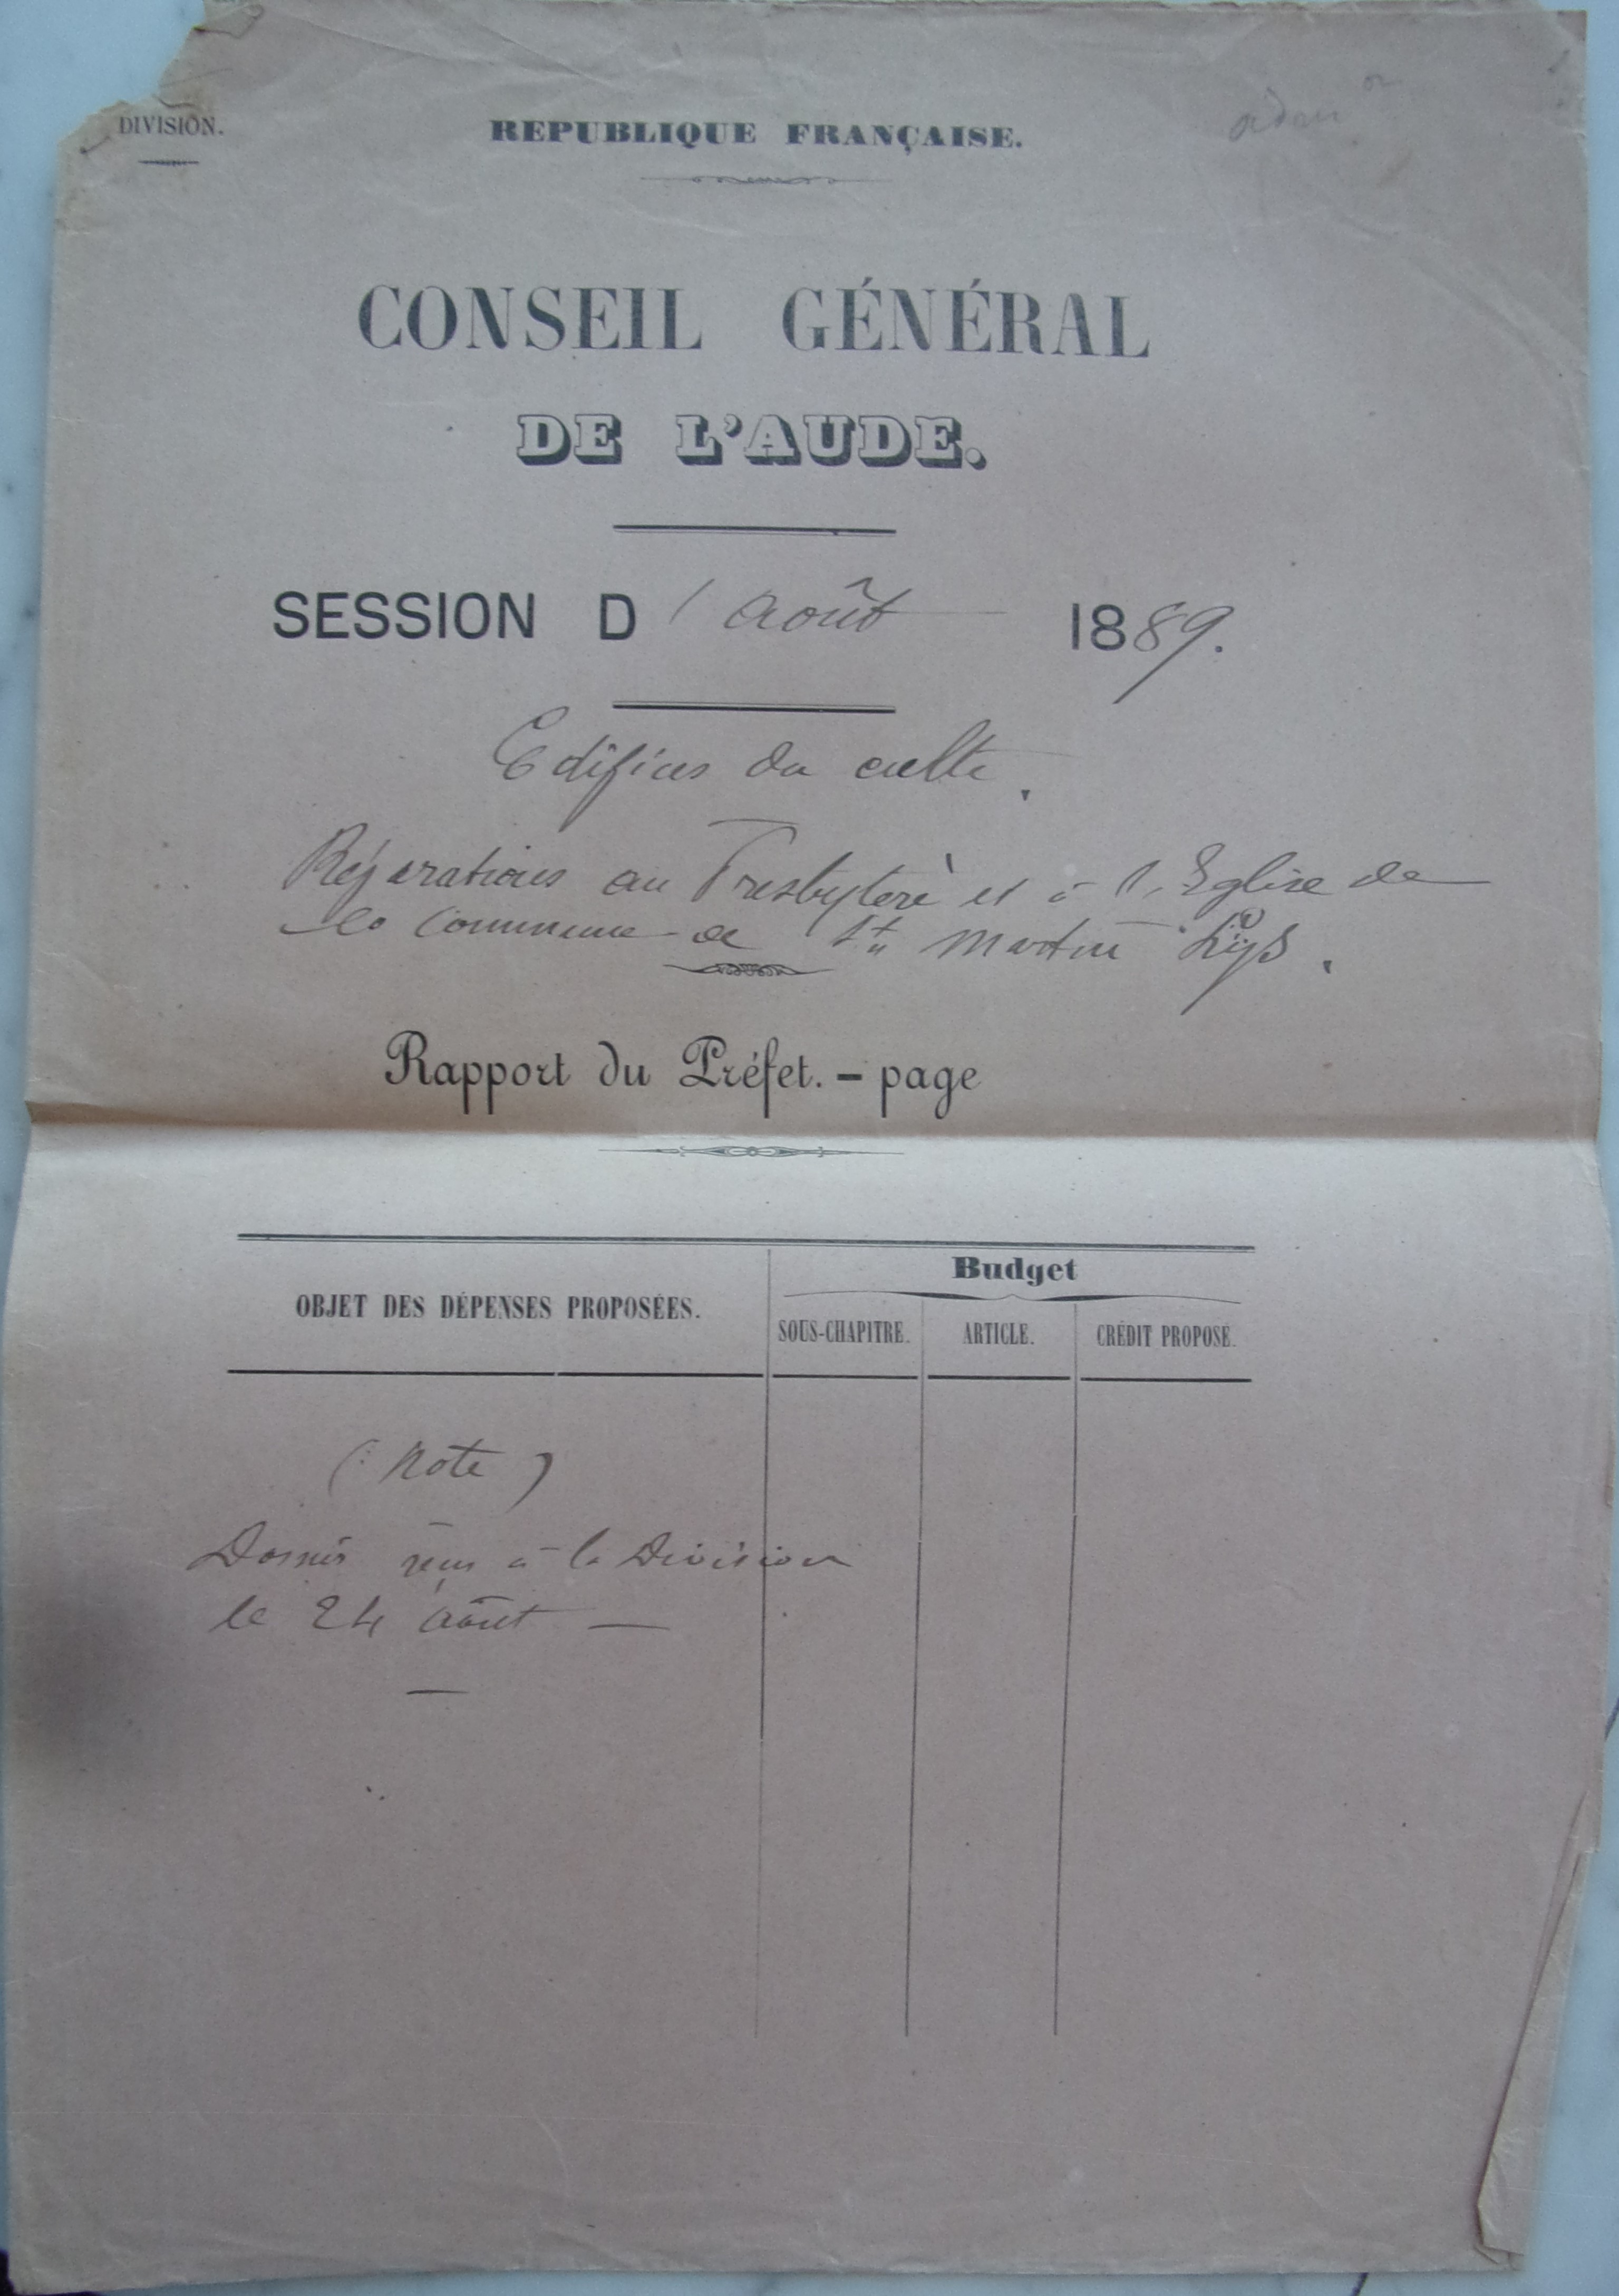 DIVISION.
RÉPUBLIQUE FRANÇAISE.
CONSEIL GÉNÉRAL
DE L'AUDE.
SESSION D'Août 1889.
Edifices du culte.
Réparations au Presbytère et à l'Eglise de
la Commune de St Martin Lys.
Rapport du Préfet. — page
OBJET DES DÉPENSES PROPOSÉES.
Budget
SOUS-CHAPITRE.
ARTICLE.
CRÉDIT PROPOSÉ.
(Note)
Dossier reçu à la Division
le 24 août —